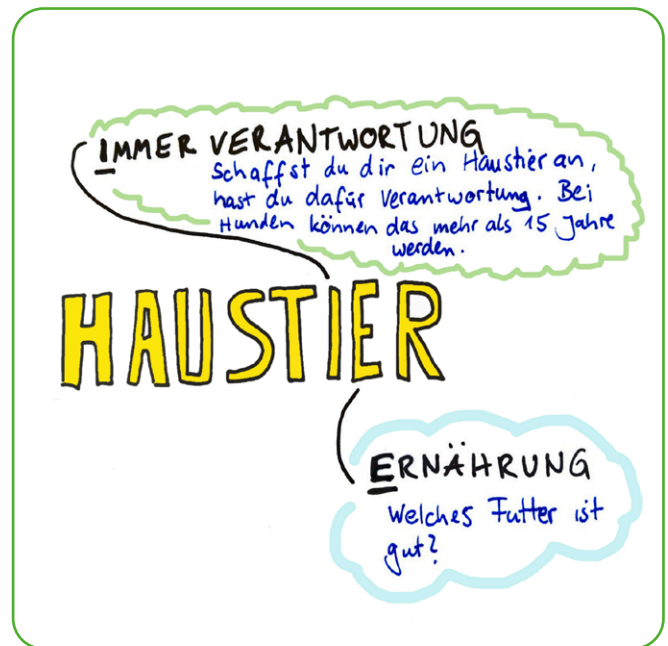 IMMER VERANTWORTUNG
Schaffst du dir ein Haustier an,
hast du dafür Verantwortung. Bei
Hunden können das mehr als 15 Jahre
werden.
HAUSTIER
ERNÄHRUNG
Welches Futter ist
gut?